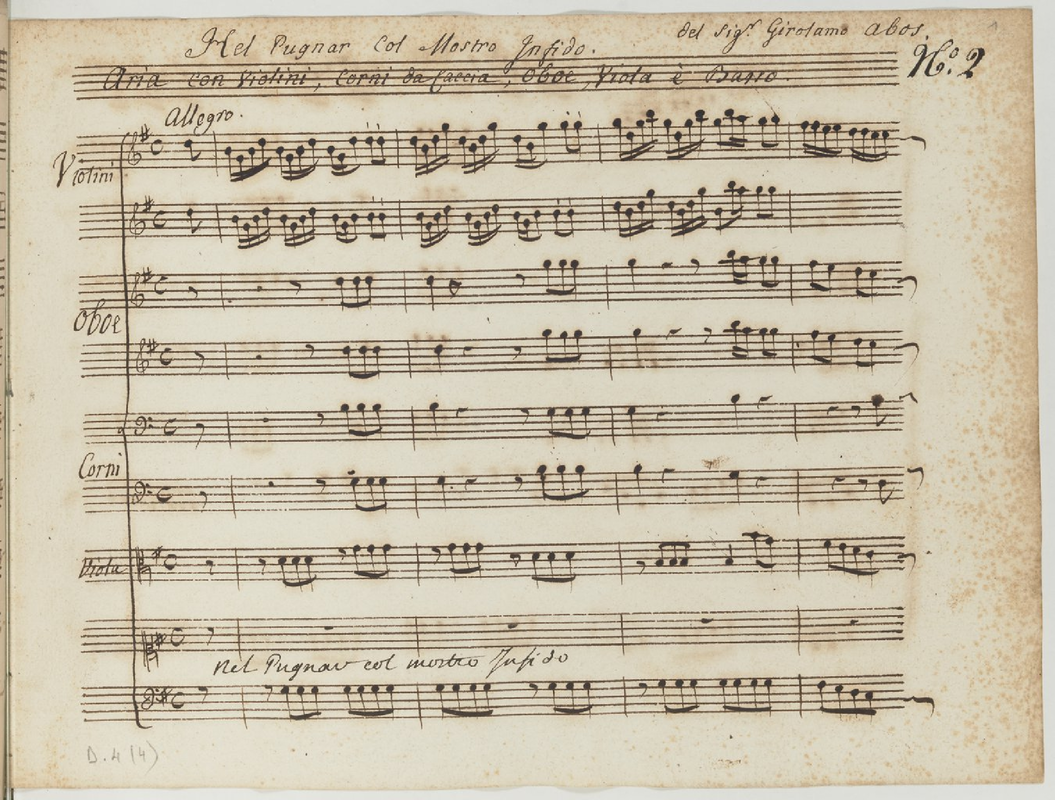 Nel Pugnar Col Mostro Infido.
del Sigr. Girolamo Abos.
1
No. 2
Aria con Violini, Corni da Caccia, Oboe, Viola è Basso.
Allegro.
Violini
Oboe
Corni
Viola
nel Pugnar col mostro Infido
D. 4 (4)